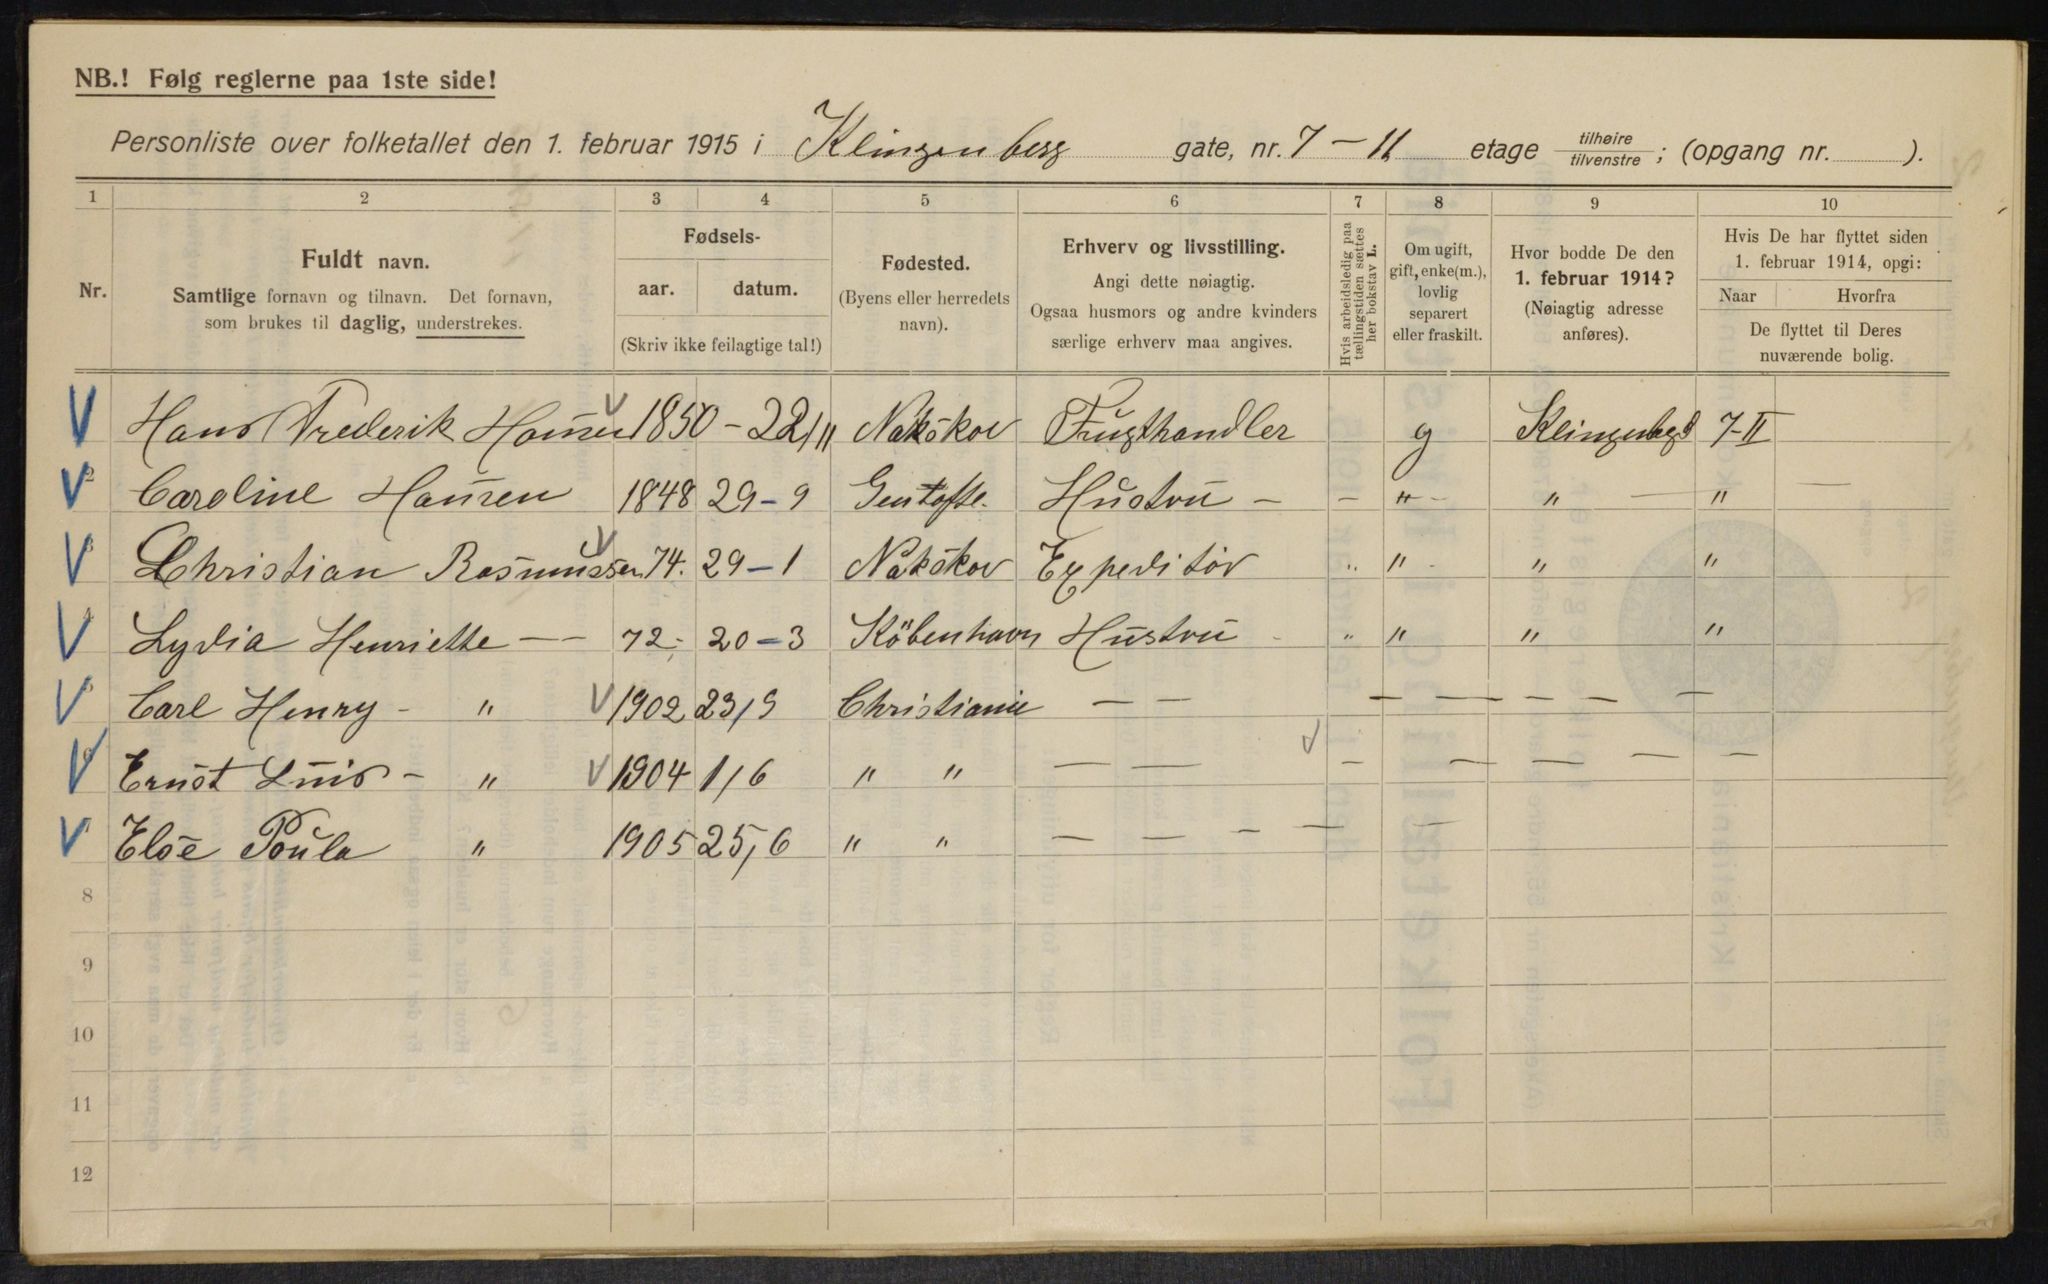 NB.! Følg reglerne paa 1ste side!
Personliste over folketallet den 1. februar 1915 i Klingenberg gate, nr. 7 – II etage tilhøire / tilvenstre ; (opgang nr. ).
1 2 3 4 5 6 7 8 9 10
Nr.
Fuldt navn.
Samtlige fornavn og tilnavn. Det fornavn,
som brukes til daglig, understrekes.
Fødsels-
aar. datum.
(Skriv ikke feilagtige tal!)
Fødested.
(Byens eller herredets
navn).
Erhverv og livsstilling.
Angi dette nøiagtig.
Ogsaa husmors og andre kvinders
særlige erhverv maa angives.
Hvis arbeidsledig paa
tællingstiden sættes
her bokstav L.
Om ugift,
gift, enke(m.),
lovlig
separert
eller fraskilt.
Hvor bodde De den
1. februar 1914?
(Nøiagtig adresse
anføres).
Hvis De har flyttet siden
1. februar 1914, opgi:
Naar Hvorfra
De flyttet til Deres
nuværende bolig.
V Hans Frederik Hansen 1850 – 22/11 Nakskov Frugthandler g Klingenbgd 7-II
V 2 Caroline Hansen 1848 29–9 Gentofte. Hustru – – " – " — " —
V 3 Christian Rasmussen 74. 29–1 Nakskov Expeditör " " " "
V 4 Lydia Henriette —— 72– 20–3 Köbenhavn Hustru " " " "
V 5 Carl Henry – " 1902 23/9 Christiania — — — — — — —
V 6 Ernst Luis – " 1904 1/6 " " — — — — — — —
V 7 Else Poula " 1905 25/6 " " — — — — —
8
9
10
11
12